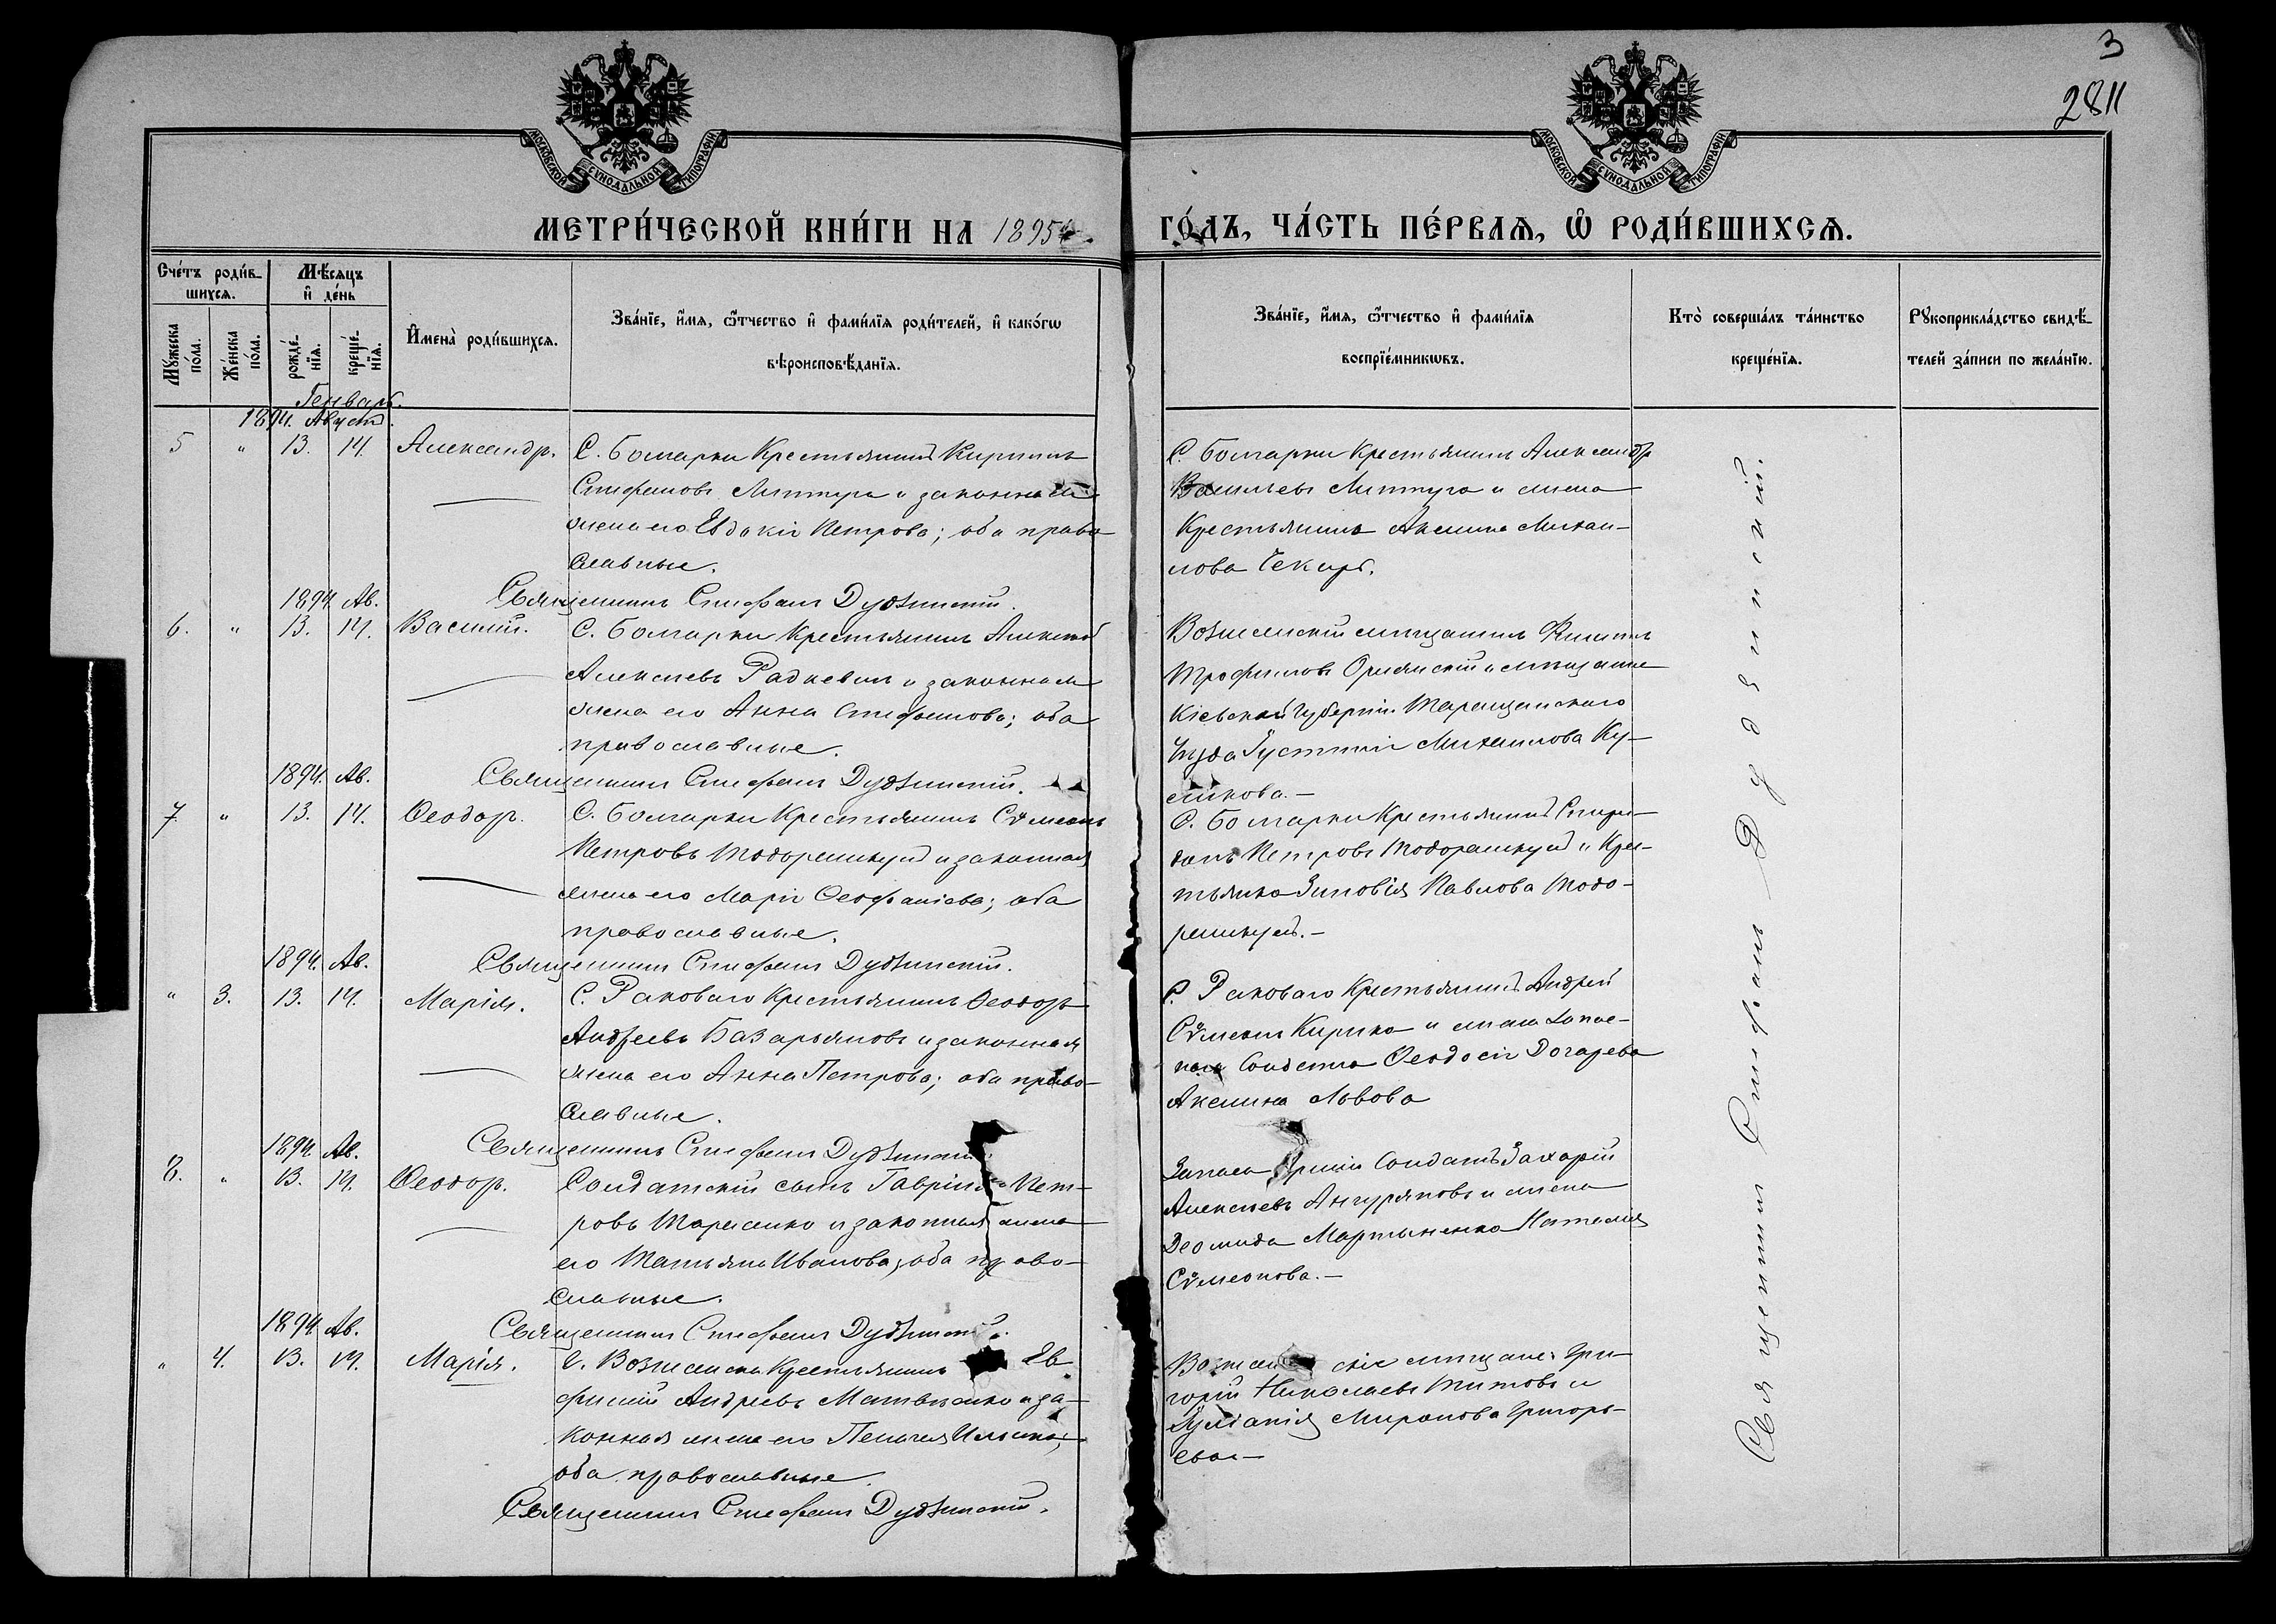 3
2811
МОСКОВСКОЙ СѴНОДАЛЬНОЙ ТИПОГРАФІИ
МОСКОВСКОЙ СѴНОДАЛЬНОЙ ТИПОГРАФІИ
МЕТРИ́ЧЕСКОЙ КНИ́ГИ НА 1895
ГО́ДЪ, ЧА́СТЬ ПЕ́РВАѦ, Ѽ РОДИ́ВШИХСѦ.
Сче́тъ роди́в-
шихсѧ.
Мѣ́сѧцъ
и҆ де́нь
Мꙋ́жеска
по́ла.
Же́нска
по́ла.
рожде́-
нїѧ.
креще́-
нїѧ.
И҆мена̀ роди́вшихсѧ.
Зва́нїе, и҆́мѧ, ѻ҆́тчество и҆ фами́лїѧ роди́телей, и҆ како́гѡ
вѣроисповѣ́данїѧ.
Зва́нїе, и҆́мѧ, ѻ҆́тчество и҆ фами́лїѧ
воспрїе́мникѡвъ.
Кто̀ соверша́лъ та́инство
креще́нїѧ.
Рꙋкоприкла́дство свидѣ́-
телей за́писи по жела́нїю.
Генварь.
1894. Август.
5 " 13. 14. Александръ.
С. Болгарки Крестьянинъ Кириллъ
Стефановъ Литтура и законная
жена его Евдокія Петрова; оба право
славные.
Священникъ Стефанъ Дудзинскій.
С. Болгарки Крестьянинъ Александръ
Васильевъ Литтура и жена
Крестьянина Акелина Михаи-
лова Чекиръ.
1894. Ав.
6. " 13. 14. Василій.
С. Болгарки Крестьянинъ Алексѣй
Алексѣевъ Радкевичъ и законная
жена его Анна Стефанова; оба
православные.
Священникъ Стефанъ Дудзинскій.
Вознесенскій мѣщанинъ Филиппъ
Трофимовъ и мѣщанка
Кіевской Губерніи Таращанскаго
Уѣзда Густинія Михаилова Ку-
1894. Ав.
7. " 13. 14. Ѳеодоръ.
С. Болгарки Крестьянинъ Сѵмеонъ
Петровъ и законная
жена его Марія Ѳеофаніева; оба
православные.
Священникъ Стефанъ Дудзинскій.
С. Болгарки Крестьянинъ Спири-
донъ Петровъ и Крес-
тьянка Зиновія Павлова Тодо-
1894. Ав.
" 3. 13. 14. Марія.
С. Раковаго Крестьянинъ Ѳеодоръ
Андреевъ Базарьяновъ и законная
жена его Анна Петрова; оба право-
славные.
Священникъ Стефанъ Дудзинскій.
С. Раковаго Крестьянинъ Андрей
Сѵмеонъ Кирика и жена запас-
наго Солдата Ѳеодосія Догарева
Акелина Львова
1894. Ав.
8. " 13. 14. Ѳеодоръ.
Солдатскій сынъ Гавріилъ Пет-
ровъ и законная жена
его Татьяна Иванова; оба право-
славные.
Священникъ Стефанъ Дудзинскій.
Запаса Арміи Солдатъ Захарій
Алексѣевъ Ангуряновъ и жена
Деомида Мартыненко Наталія
Сѵмеонова.-
1894. Ав.
" 4. 13. 14. Марія.
Г. Вознесенска Крестьянинъ Ев
фимій Андреевъ Матвѣенко и за-
конная жена его Пелагея Ильина;
оба православные
Священникъ Стефанъ Дудзинскій.
Вознесенскіе мѣщане: Гри-
горій Николаевъ Титовъ и
Іуліанія Миронова Григорь-
ева.-
Священникъ Стефанъ Дудзинскій.